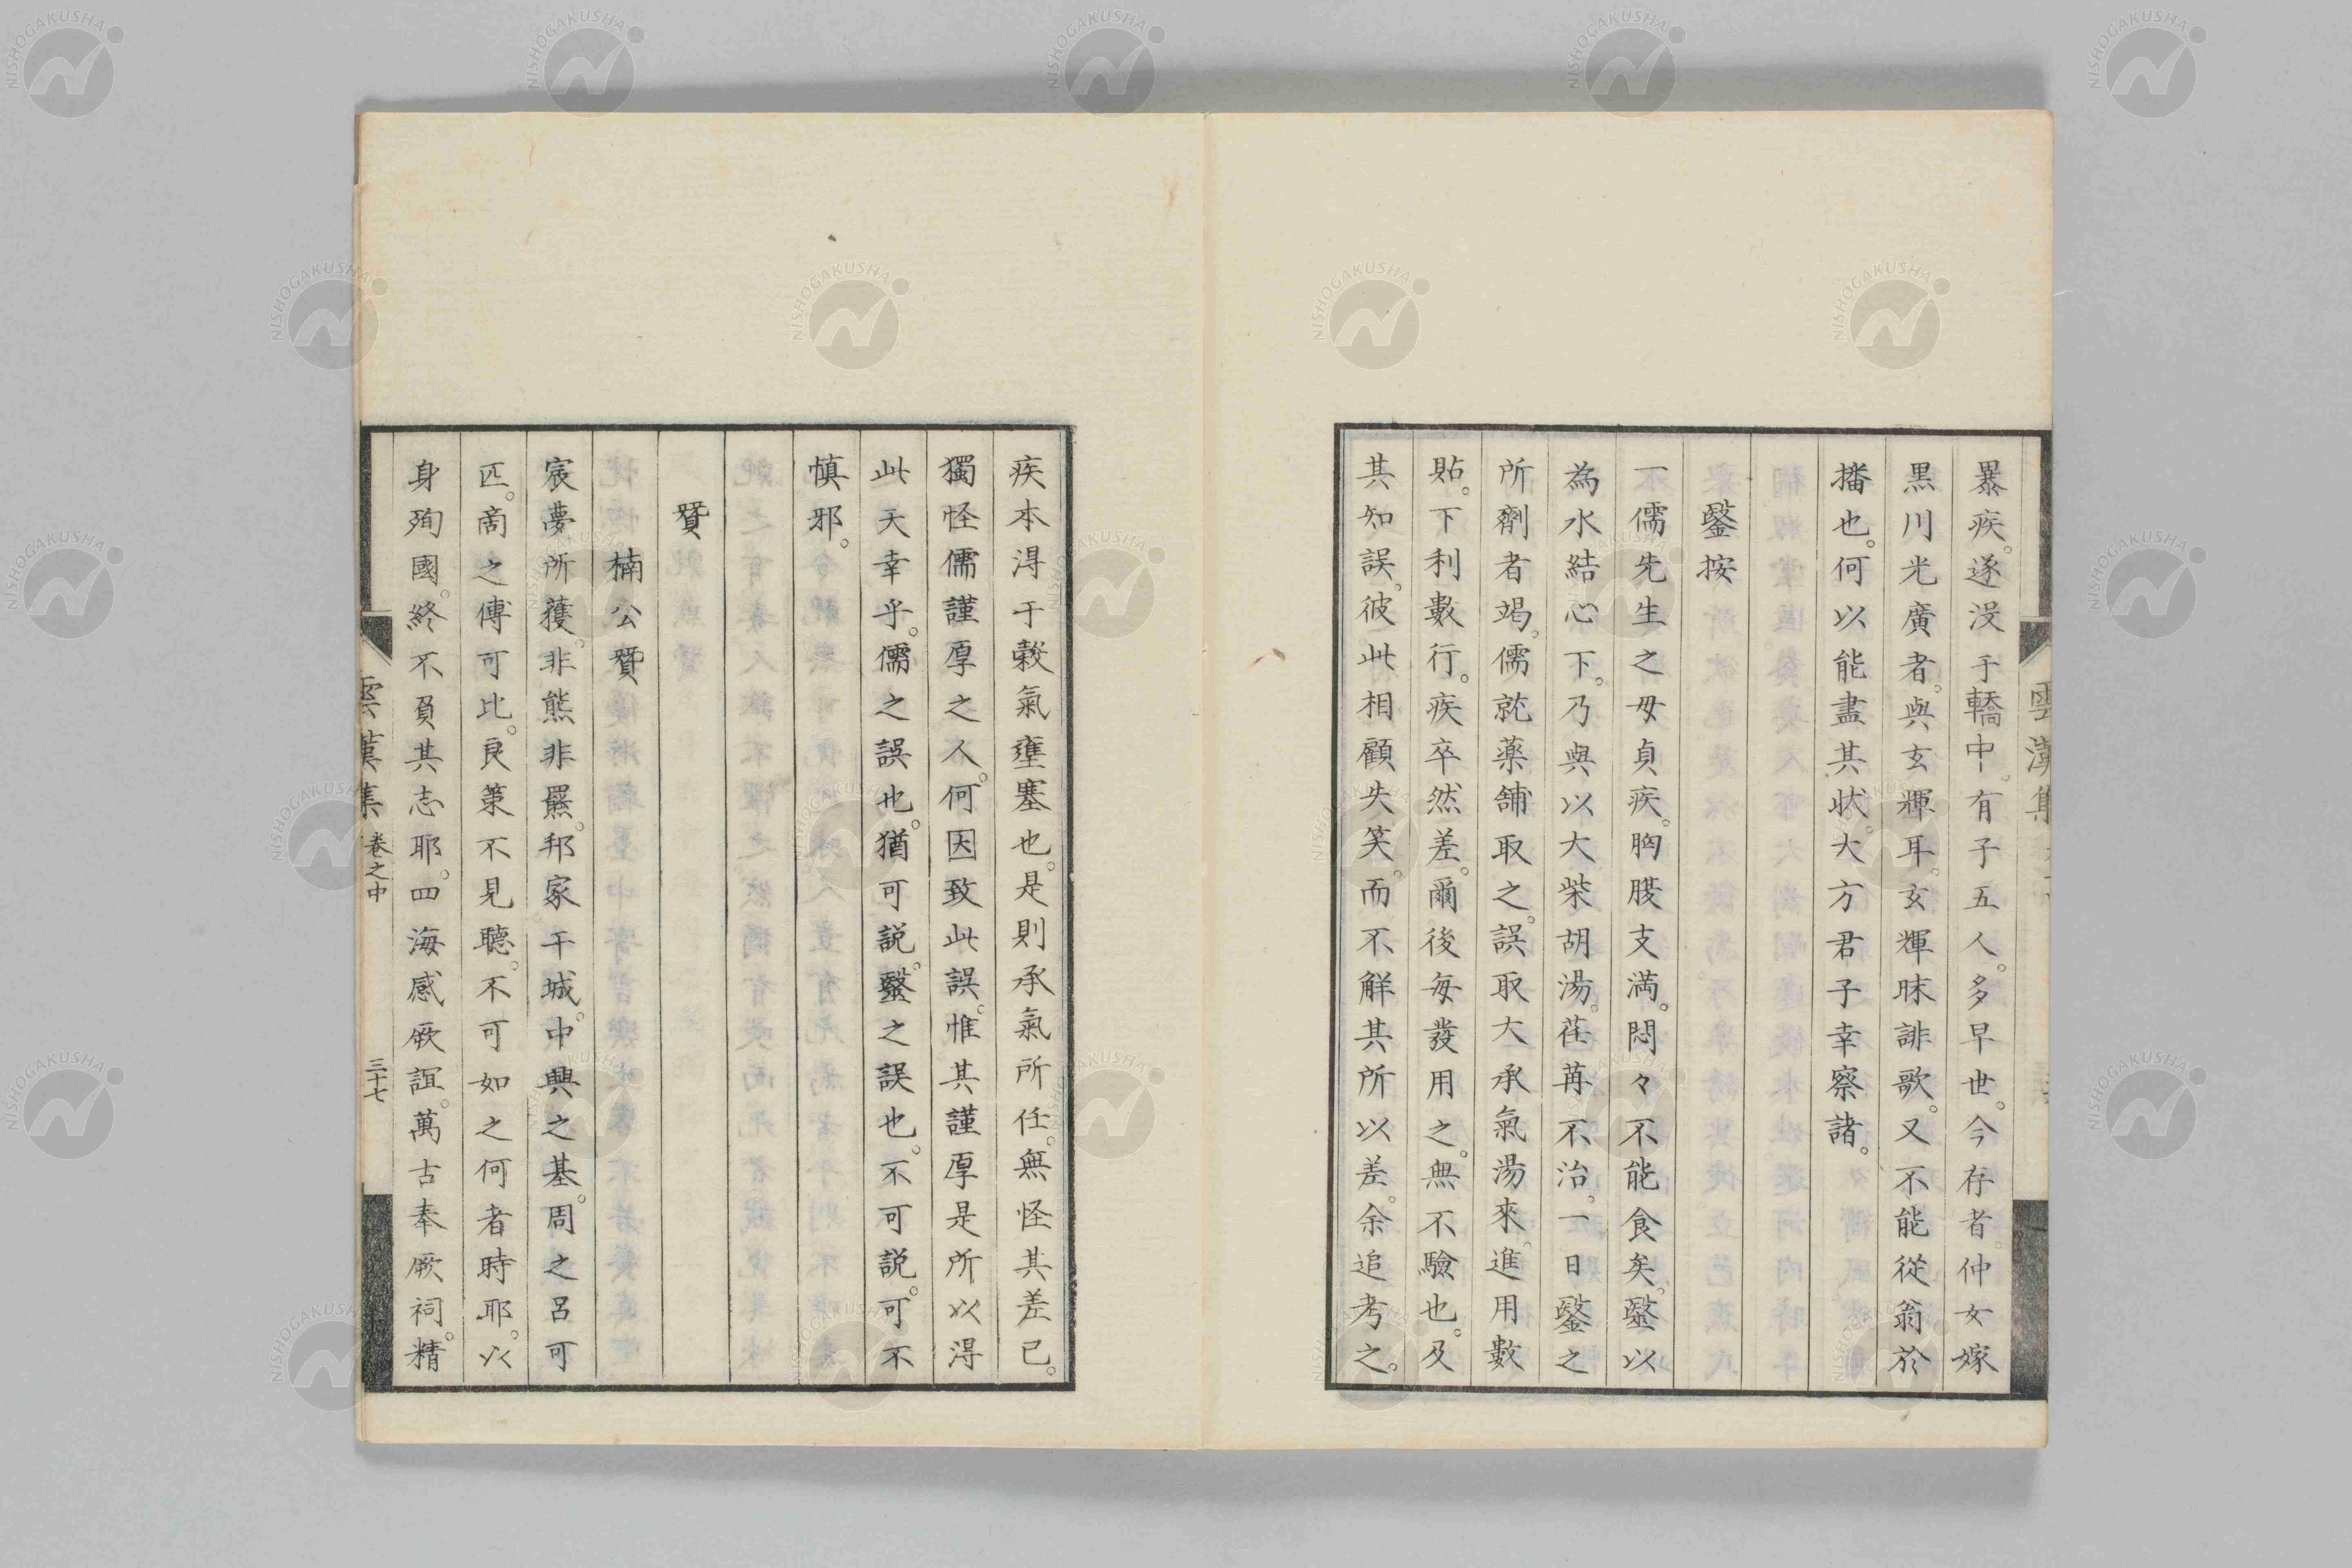 暴疾。遂没于轎中。有子五人。多早世。今存者。仲女嫁
黒川光廣者。與玄輝耳。玄輝昧誹歌。又不能從翁於
播也。何以能盡其状。大方君子幸察諸。
鑿按
一儒先生之母貞疾。胸腹支満。悶々不能食矣。毉以
為水結心下。乃與以大柴胡湯。荏苒不治。一日毉之
所劑者竭。儒就薬舗取之。誤取大承氣湯來。進用數
貼。下利數行。疾卒然差。爾後毎發用之。無不驗也。及
其知誤。彼此相顧失笑。而不觧其所以差。余追考之。
疾本淂于穀氣壅塞也。是則承氣所任。無怪其差已。
獨怪儒謹厚之人。何因致此誤。惟其謹厚是所以淂
此天幸乎。儒之誤也。猶可説。毉之誤也。不可説。可不
慎邪。
賛
楠公賛
宸夢所獲。非熊非羆。邦家干城。中興之基。周之呂可
匹。商之傅可比。良策不見聴。不可如之何者時耶。以
身殉國。終不負其志耶。四海感厥誼。萬古奉厥祠。精
雲漢集
卷之中
三十七
雲漢集
NISHOGAKUSHA